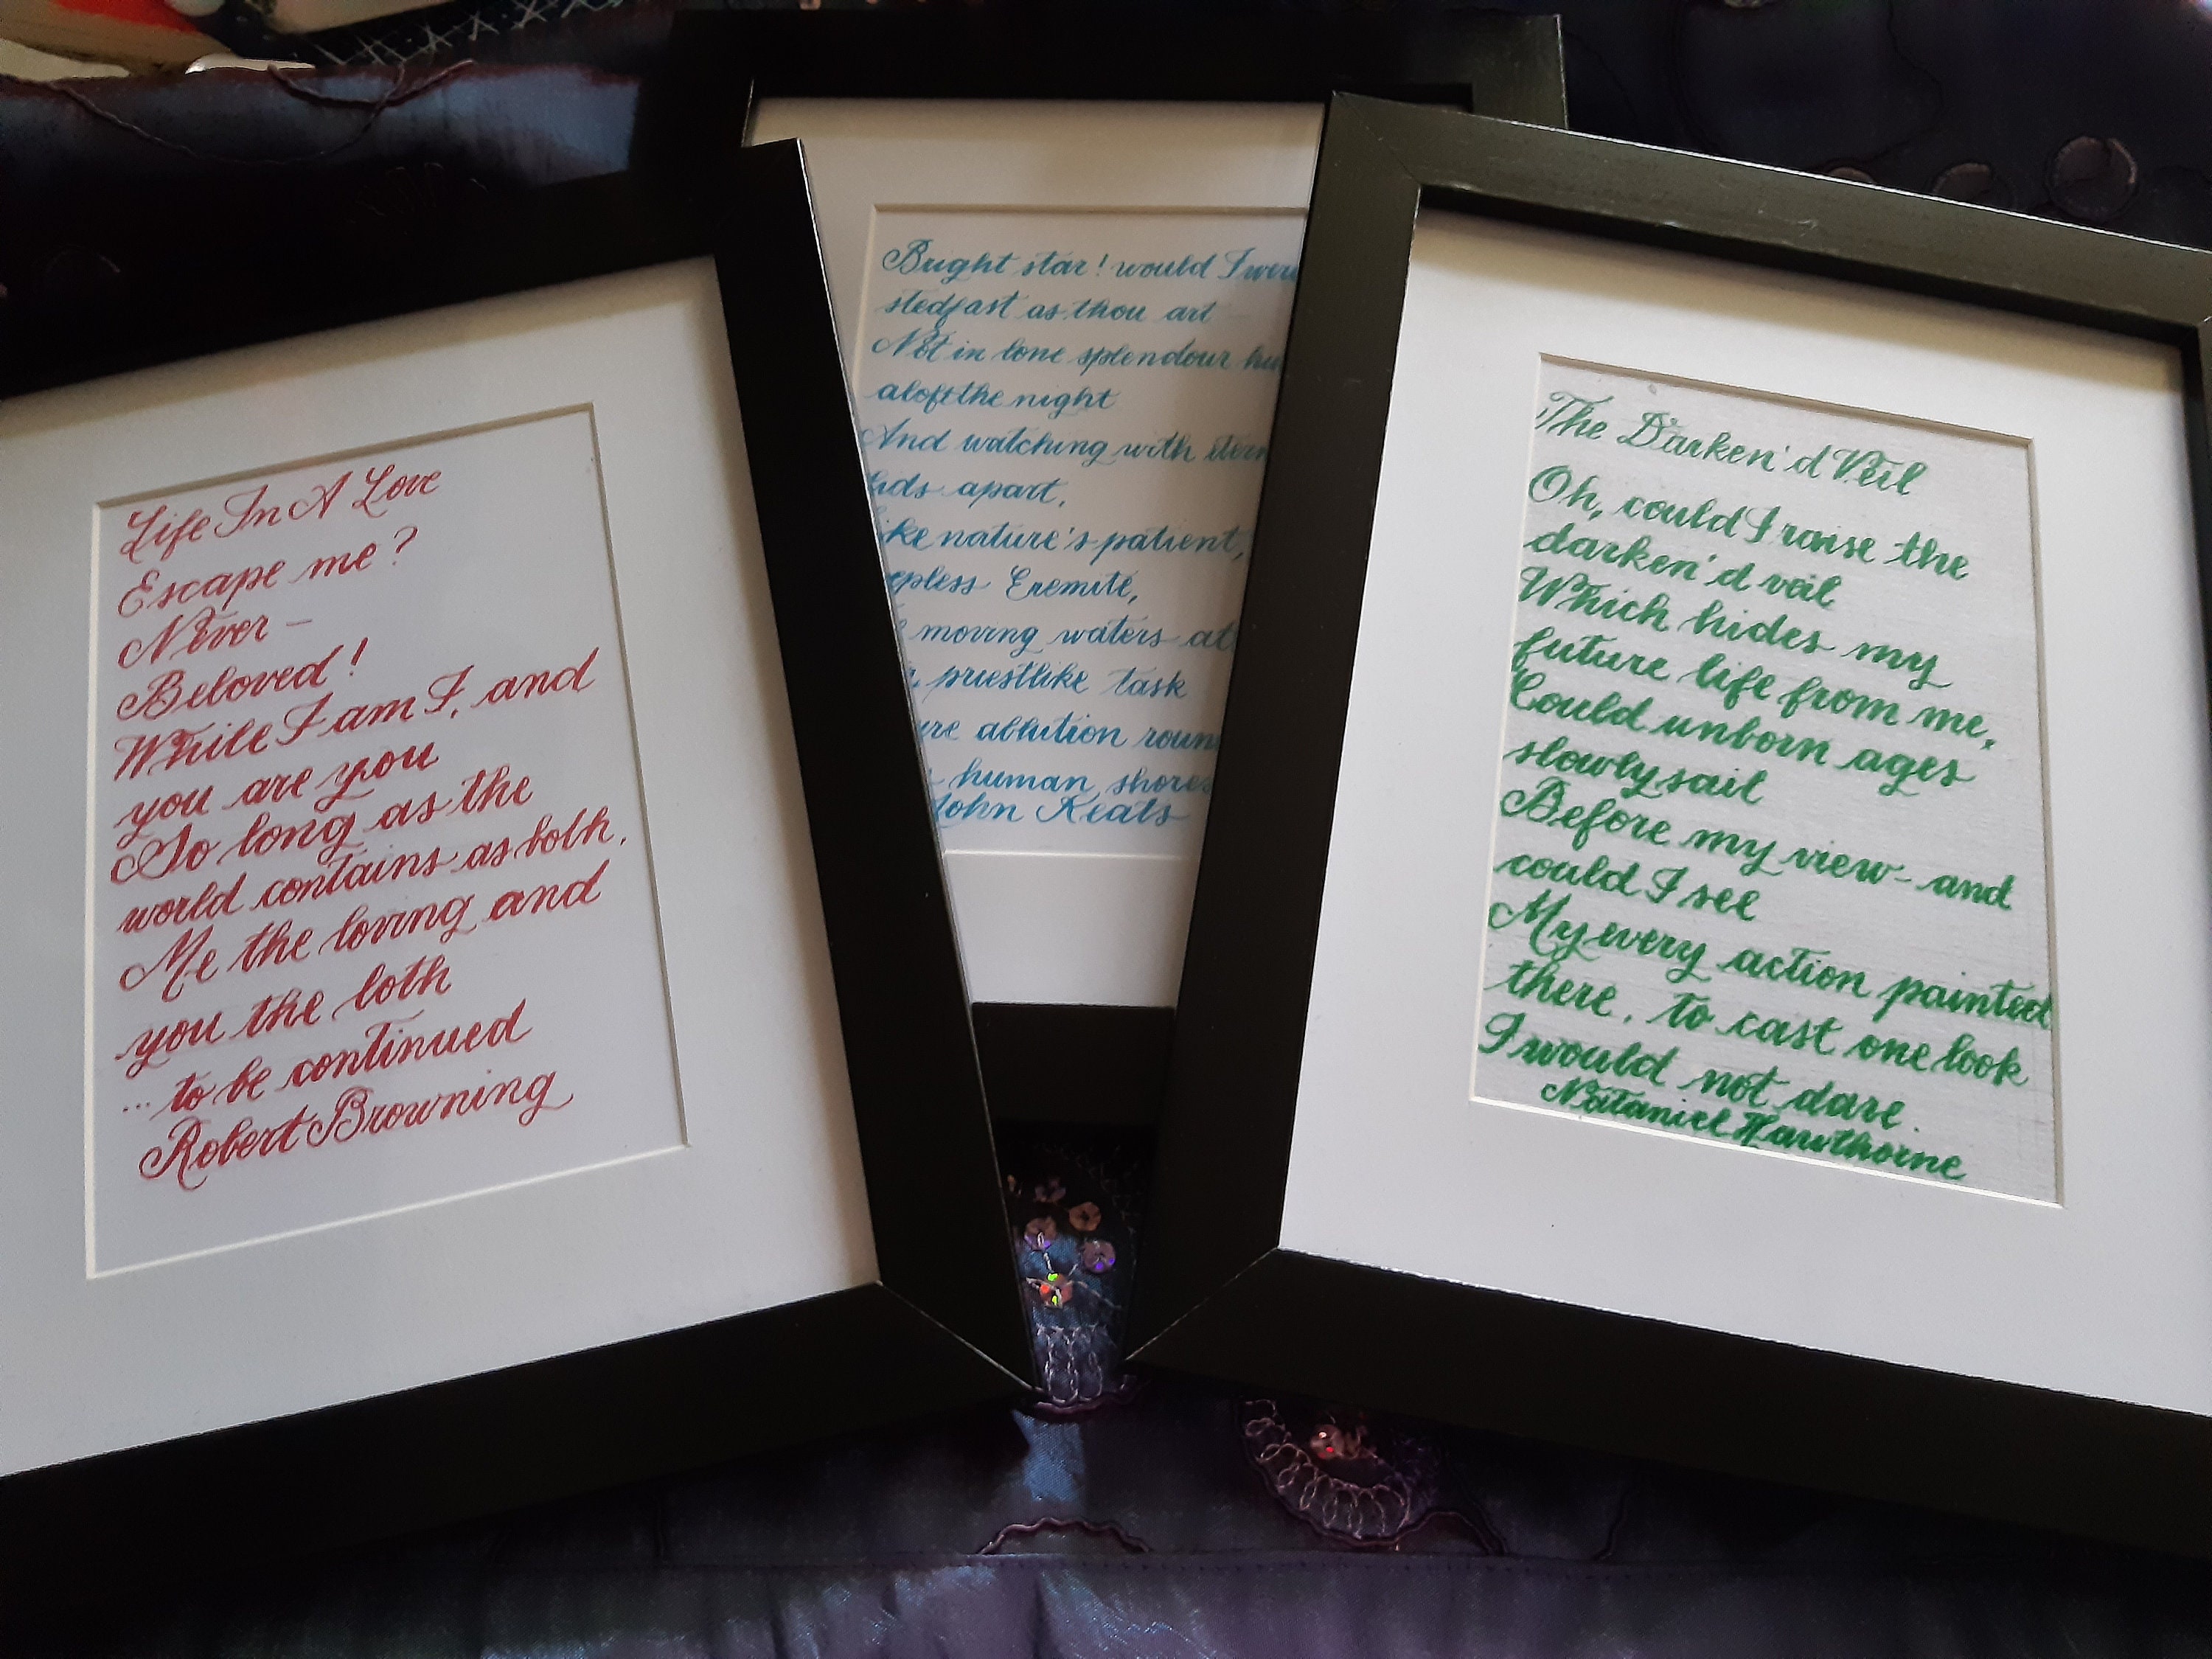 Life In A Love
Escape me?
Never –
Beloved!
While I am I, and
you are you
So long as the
world contains as both,
Me the loving and
you the loth
... to be continued
Robert Browning
Bright star! would I were
stedfast as thou art
Not in lone splendour
aloft the night
And watching with
lids apart,
nature's patient,
Eremite,
moving waters
priestlike task
ablution
human shores
John Keats
The Darken'd Veil
Oh, could I raise the
darken'd veil
Which hides my
future life from me,
Could unborn ages
slowly sail
Before my view – and
could I see
My every action painted
there, to cast one look
I would not dare.
Nataniel Hawthorne